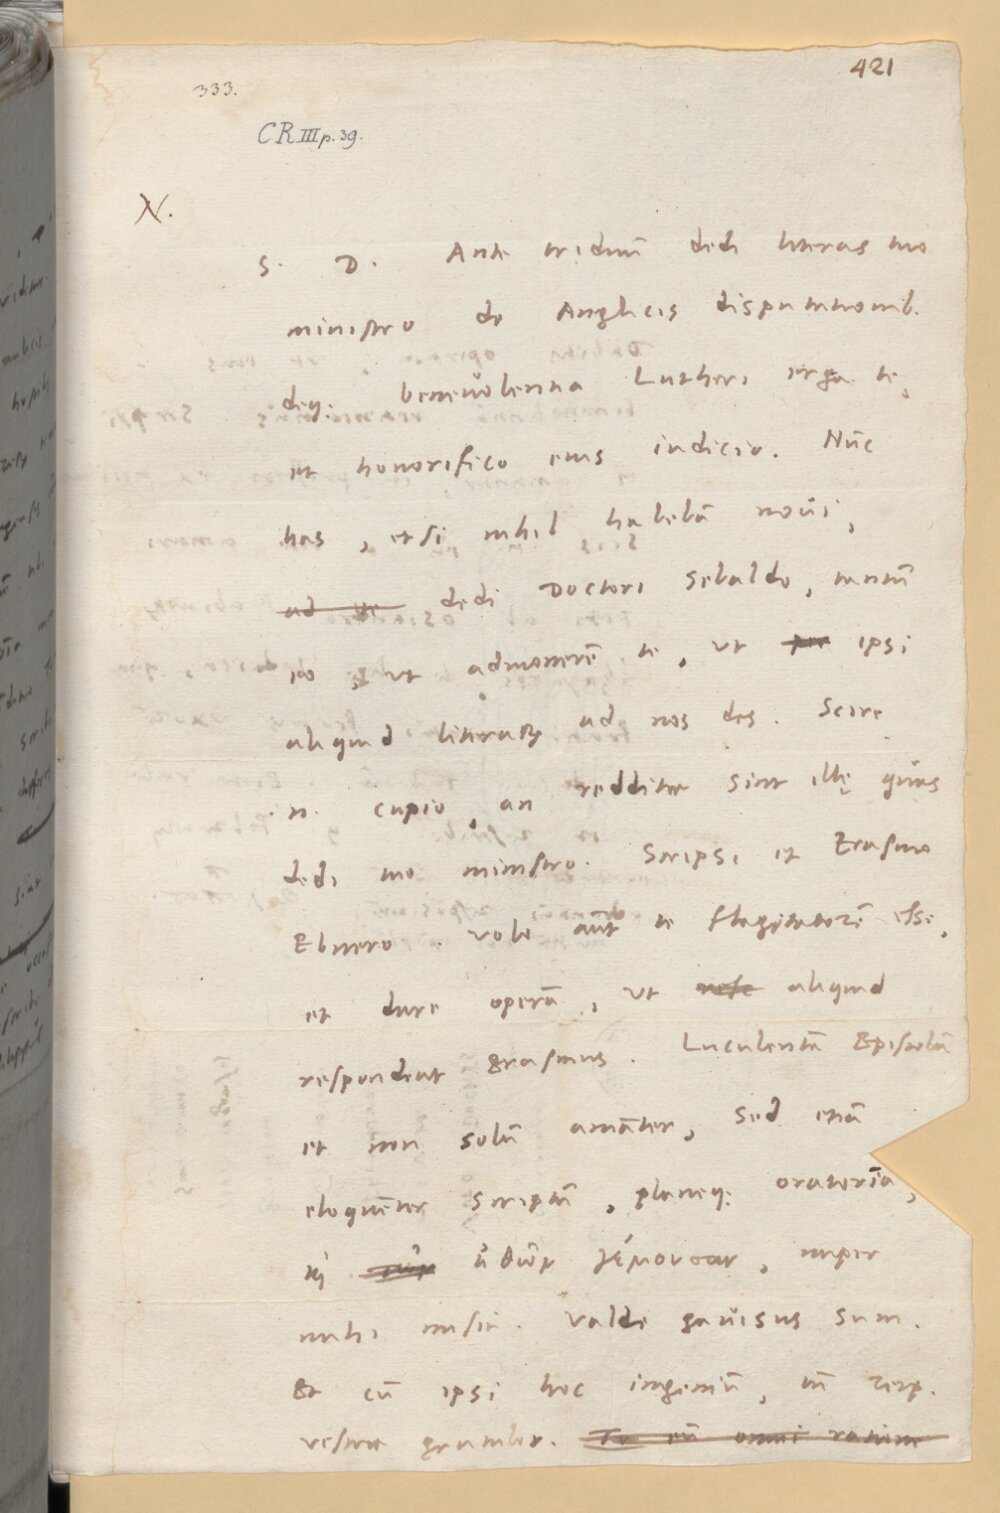 421
333.
CR III p. 39.
N.
S. D. Ante triduū dedi literas tuo
ministro de Anglicis disputationib.
deq; benevolentia Lutheri erga te,
et honorifico eius iudicio. Nūc
has, etsi nihil habebā novi,
ad te dedi Doctori Sebaldo, tantū
ut admonerē te, ut per ipsi
aliquid literarꝝ ad nos des. Scire
n. cupio, an redditae sint illę quas
dedi tuo ministro. Scripsi et Erasmo
Ebnero. volo aūt te flagitatorē esse,
et dare operā, ut aliquid
respondeat Erasmus. Luculentā Epistolā
et non solū amāter, sed etiā
eloquēter scriptā, planeq; oratoria,
γέμουσαν, nuper
mihi misit. Valde gavisus sum.
Et cū ipsi hoc ingeniū, tū Reip.
vestrae gratulor. omni